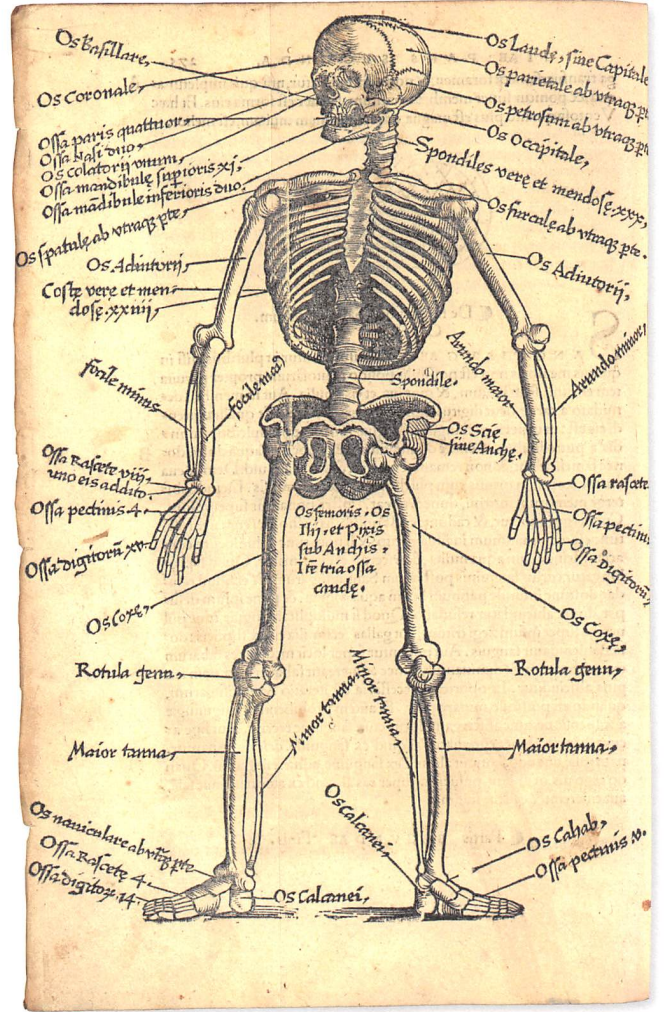 Os basillare,
Os Coronale,
Ossa paris quattuor
Ossa Nasi duo,
Os colatorii vnum,
Ossa mandibulę supioris xj,
Ossa mādibule inferioris duo,
Os spatulę ab vtraqꝫ pte,
Os Adiutorij,
Costę verę et men-
dosę. xxiiij,
focile minus
focile
Ossa Rascete viij,
vno eis addito.
Ossa pectinis 4.
Ossa digitorū xv.
Os Coxę,
Rotula genu,
Maior
Minor
Os nauiculare ab vtraqꝫ pte
Ossa Rascetę 4.
Ossa digitoꝝ 14.
Os Calcanei,
Os Laudę, siue Capitale
Os parietale ab vtraqꝫ pte
Os petrosum ab vtraqꝫ pte
Os Occipitale,
Spondiles verę et mendosę. xxx,
Os furculę ab vtraqꝫ pte.
Os Adiutorij,
Arundo maior
Arundo minor,
Spondile.
Os Scię
siue Anchę.
Ossa rascete
Ossa pectinis
Ossa digitorū,
Os femoris. Os
Ilij, et Pixis
sub Anchis.
Itē tria ossa
caudę.
Os Coxę,
Rotula genu,
Minor
Maior
Os Calcanei,
Os Cahab,
Ossa pectinis v.